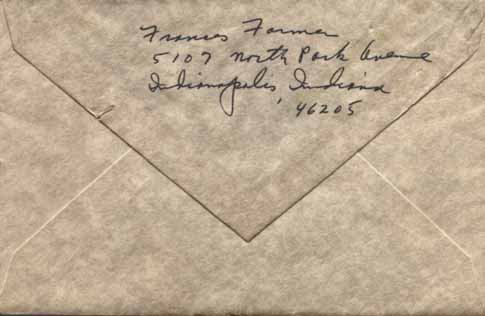 Frances Farmer
5107 North Park Avenue
Indianapolis, Indiana
46205